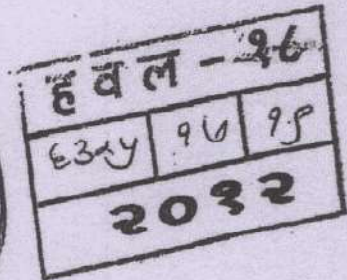 हवल - १७
६३२५ १७ १९
२०१२